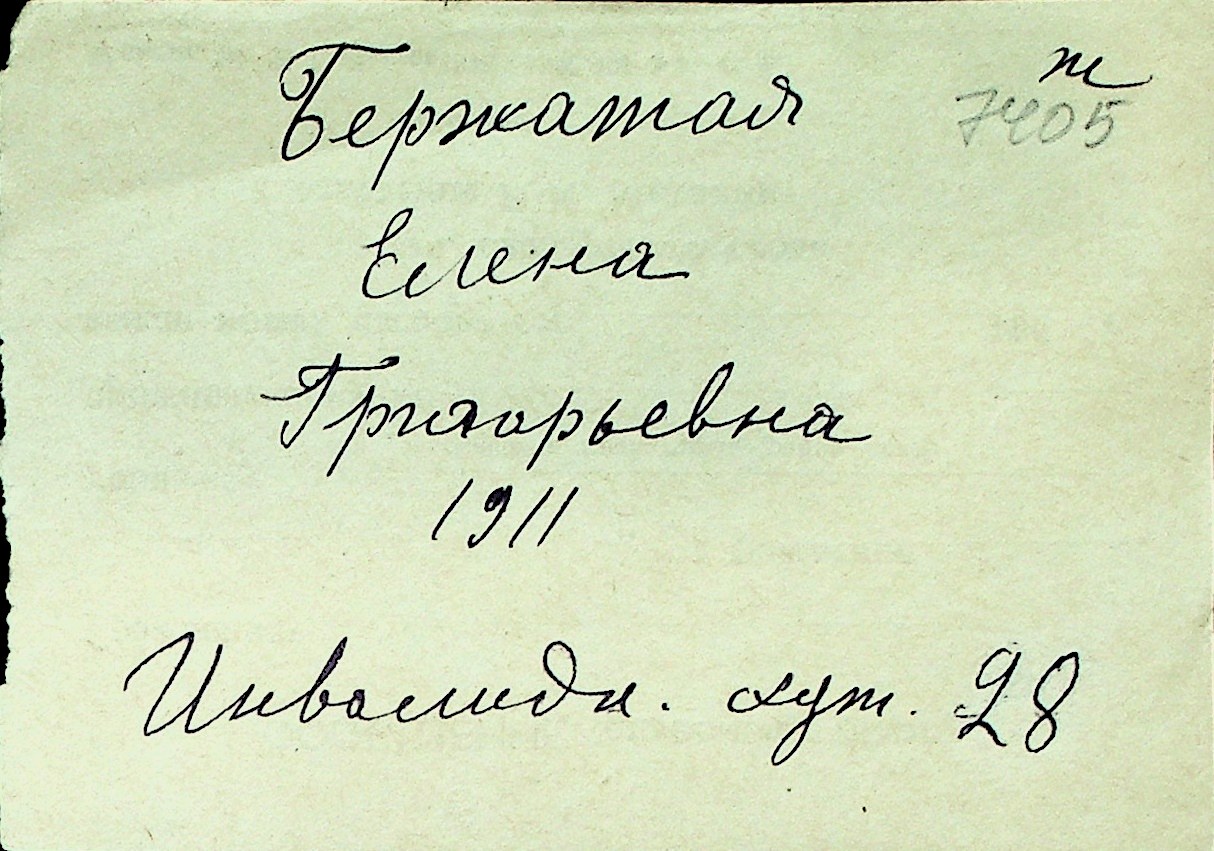 Бержатая ж
7405
Елена
Григорьевна
1911
Инвалидн. хут. 28